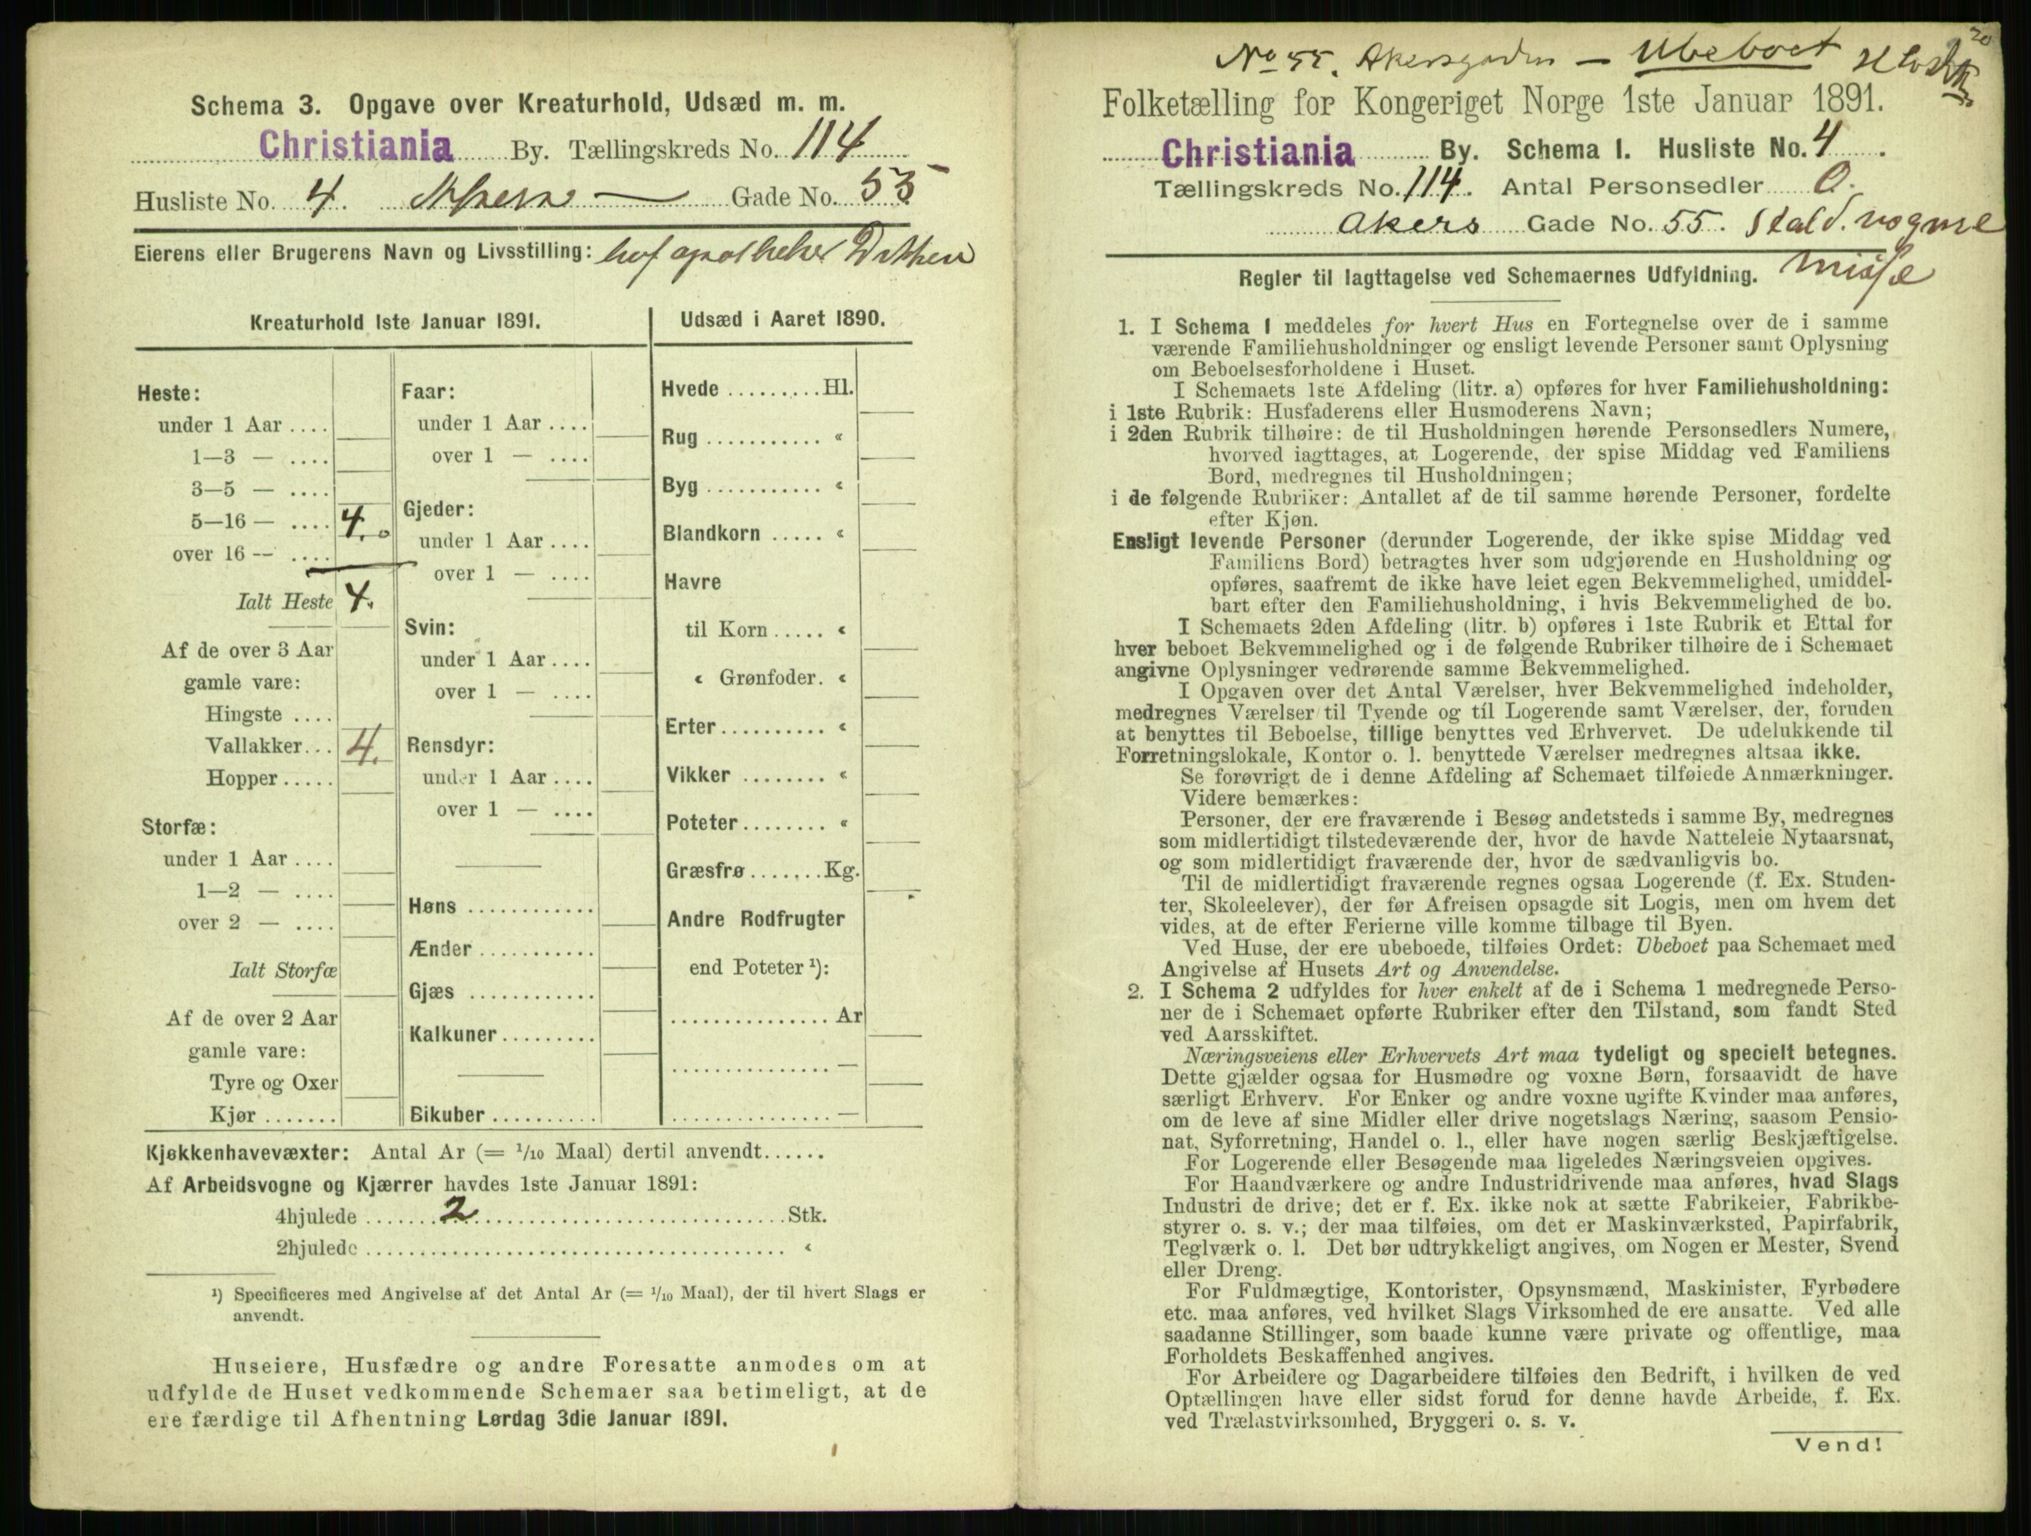 Schema 3. Opgave over Kreaturhold, Udsæd m. m.
Christiania By. Tællingskreds No. 114
Husliste No. 4. Akers — Gade No. 55
Eierens eller Brugerens Navn og Livsstilling: hofapotheker Ditten
Kreaturhold 1ste Januar 1891.
Heste:
under 1 Aar ....
1—3 — ....
3—5 — ....
5—16 — .... 4.
over 16 — ....
Ialt Heste 4.
Af de over 3 Aar
gamle vare:
Hingste ....
Vallakker... 4.
Hopper .....
Storfæ:
under 1 Aar ....
1—2 — ....
over 2 — ....
Ialt Storfæ
Af de over 2 Aar
gamle vare:
Tyre og Oxer
Kjør .......
Faar:
under 1 Aar ....
over 1 — ....
Gjeder:
under 1 Aar ....
over 1 — ....
Svin:
under 1 Aar ....
over 1 — ....
Rensdyr:
under 1 Aar ....
over 1 — ....
Høns ............
Ænder ...........
Gjæs ............
Kalkuner .........
Bikuber ..........
Udsæd i Aaret 1890.
Hvede ......... Hl.
Rug ........... «
Byg ........... «
Blandkorn ..... «
Havre
til Korn ..... «
« Grønfoder. «
Erter ......... «
Vikker ........ «
Poteter ........ «
Græsfrø ....... Kg.
Andre Rodfrugter
end Poteter ¹):
............... Ar
............... —
............... —
Kjøkkenhavevæxter: Antal Ar (= 1/10 Maal) dertil anvendt......
Af Arbeidsvogne og Kjærrer havdes 1ste Januar 1891:
4hjulede ....... 2 ....... Stk.
2hjulede ....... «
¹) Specificeres med Angivelse af det Antal Ar (= 1/10 Maal), der til hvert Slags er
anvendt.
Huseiere, Husfædre og andre Foresatte anmodes om at
udfylde de Huset vedkommende Schemaer saa betimeligt, at de
ere færdige til Afhentning Lørdag 3die Januar 1891.
20
No 55. Akersgaden — Ubeboet
Folketælling for Kongeriget Norge 1ste Januar 1891.
Christiania By. Schema 1. Husliste No. 4
Tællingskreds No. 114. Antal Personsedler 0.
Akers Gade No. 55. Stald. vogne
Regler til Iagttagelse ved Schemaernes Udfyldning.
1. I Schema 1 meddeles for hvert Hus en Fortegnelse over de i samme
værende Familiehusholdninger og ensligt levende Personer samt Oplysning
om Beboelsesforholdene i Huset.
I Schemaets 1ste Afdeling (litr. a) opføres for hver Familiehusholdning:
i 1ste Rubrik: Husfaderens eller Husmoderens Navn;
i 2den Rubrik tilhøire: de til Husholdningen hørende Personsedlers Numere,
hvorved iagttages, at Logerende, der spise Middag ved Familiens
Bord, medregnes til Husholdningen;
i de følgende Rubriker: Antallet af de til samme hørende Personer, fordelte
efter Kjøn.
Ensligt levende Personer (derunder Logerende, der ikke spise Middag ved
Familiens Bord) betragtes hver som udgjørende en Husholdning og
opføres, saafremt de ikke have leiet egen Bekvemmelighed, umiddel-
bart efter den Familiehusholdning, i hvis Bekvemmelighed de bo.
I Schemaets 2den Afdeling (litr. b) opføres i 1ste Rubrik et Ettal for
hver beboet Bekvemmelighed og i de følgende Rubriker tilhøire de i Schemaet
angivne Oplysninger vedrørende samme Bekvemmelighed.
I Opgaven over det Antal Værelser, hver Bekvemmelighed indeholder,
medregnes Værelser til Tyende og til Logerende samt Værelser, der, foruden
at benyttes til Beboelse, tillige benyttes ved Erhvervet. De udelukkende til
Forretningslokale, Kontor o. l. benyttede Værelser medregnes altsaa ikke.
Se forøvrigt de i denne Afdeling af Schemaet tilføiede Anmærkninger.
Videre bemærkes:
Personer, der ere fraværende i Besøg andetsteds i samme By, medregnes
som midlertidigt tilstedeværende der, hvor de havde Natteleie Nytaarsnat,
og som midlertidigt fraværende der, hvor de sædvanligvis bo.
Til de midlertidigt fraværende regnes ogsaa Logerende (f. Ex. Studen-
ter, Skoleelever), der før Afreisen opsagde sit Logis, men om hvem det
vides, at de efter Ferierne ville komme tilbage til Byen.
Ved Huse, der ere ubeboede, tilføies Ordet: Ubeboet paa Schemaet med
Angivelse af Husets Art og Anvendelse.
2. I Schema 2 udfyldes for hver enkelt af de i Schema 1 medregnede Perso-
ner de i Schemaet opførte Rubriker efter den Tilstand, som fandt Sted
ved Aarsskiftet.
Næringsveiens eller Erhvervets Art maa tydeligt og specielt betegnes.
Dette gjælder ogsaa for Husmødre og voxne Børn, forsaavidt de have
særligt Erhverv. For Enker og andre voxne ugifte Kvinder maa anføres,
om de leve af sine Midler eller drive nogetslags Næring, saasom Pensio-
nat, Syforretning, Handel o. l., eller have nogen særlig Beskjæftigelse.
For Logerende eller Besøgende maa ligeledes Næringsveien opgives.
For Haandværkere og andre Industridrivende maa anføres, hvad Slags
Industri de drive; det er f. Ex. ikke nok at sætte Fabrikeier, Fabrikbe-
styrer o. s. v.; der maa tilføies, om det er Maskinværksted, Papirfabrik,
Teglværk o. l. Det bør udtrykkeligt angives, om Nogen er Mester, Svend
eller Dreng.
For Fuldmægtige, Kontorister, Opsynsmænd, Maskinister, Fyrbødere
etc. maa anføres, ved hvilket Slags Virksomhed de ere ansatte. Ved alle
saadanne Stillinger, som baade kunne være private og offentlige, maa
Forholdets Beskaffenhed angives.
For Arbeidere og Dagarbeidere tilføies den Bedrift, i hvilken de ved
Optællingen have eller sidst forud for denne havde Arbeide, f. Ex.
ved Trælastvirksomhed, Bryggeri o. s. v.
Vend!